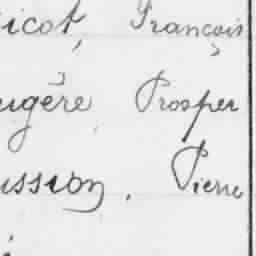 icot, François
ugère Prosper
ussion, Pierre